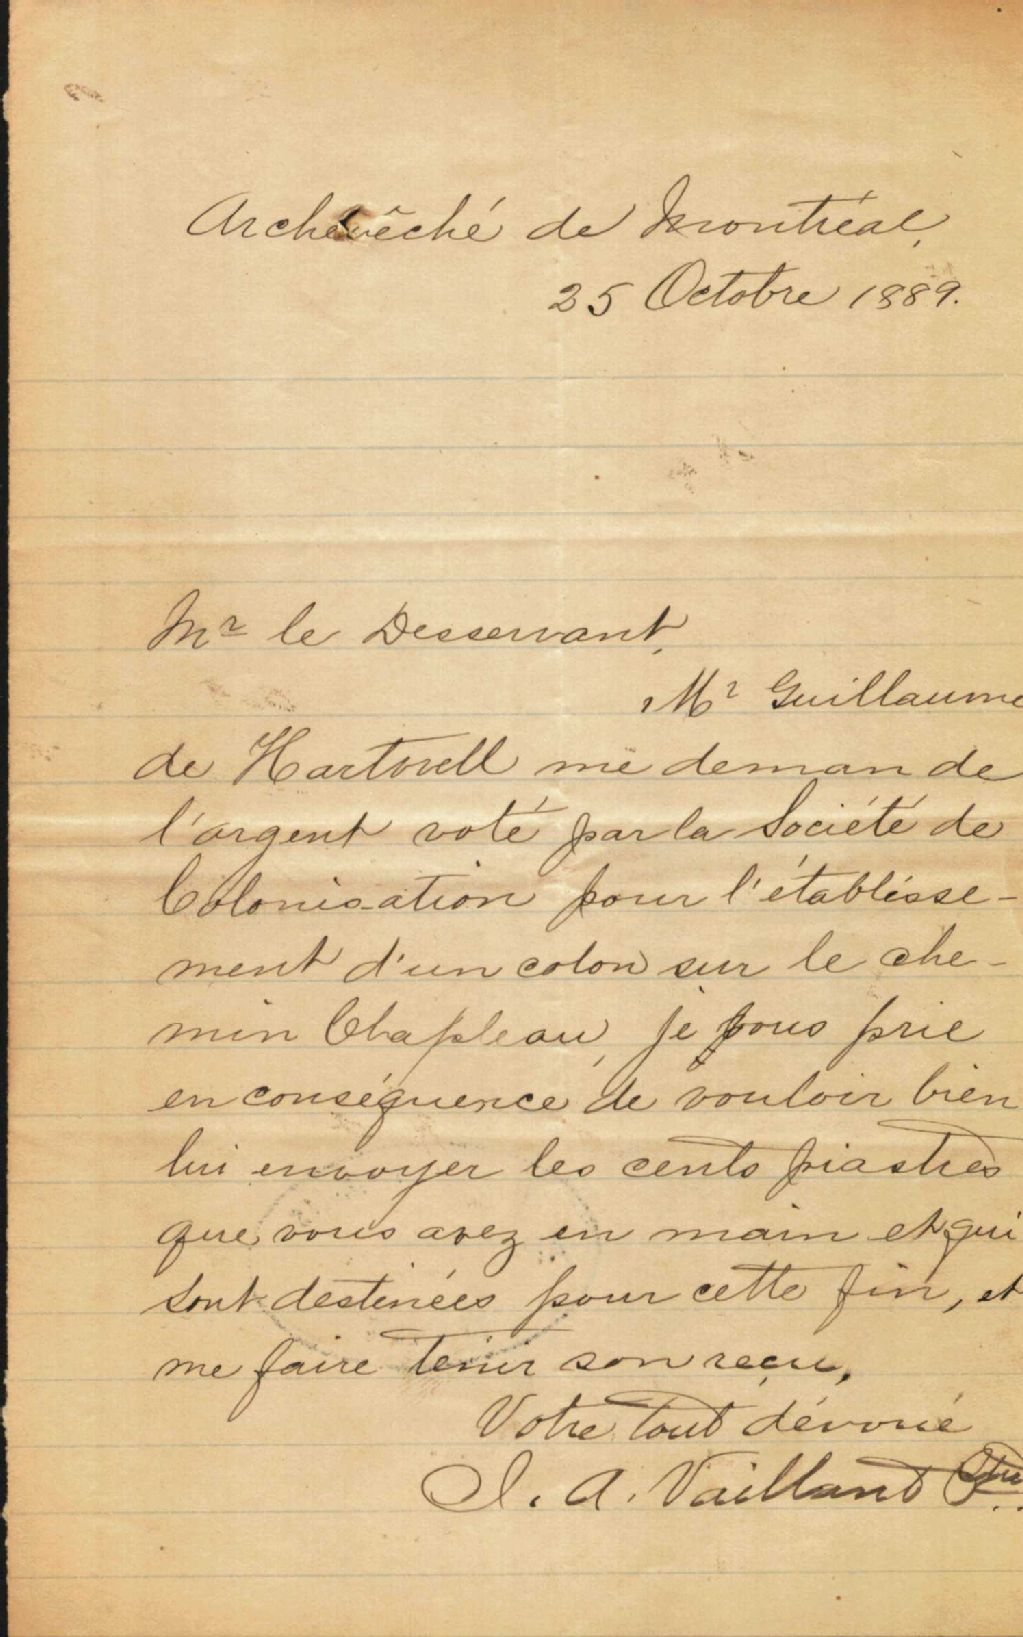 Archevêché de Montréal,
25 Octobre 1889.
Mr le Desservant,
Mr Guillaume
de Hartwell me demande
l'argent voté par la Société de
Colonisation pour l'établisse-
ment d'un colon sur le che-
min Chapleau, je vous prie
en conséquence de vouloir bien
lui envoyer les cents piastres
que vous avez en main et qui
sont destinées pour cette fin, et
me faire tenir son reçu.
Votre tout dévoué
J. A. Vaillant